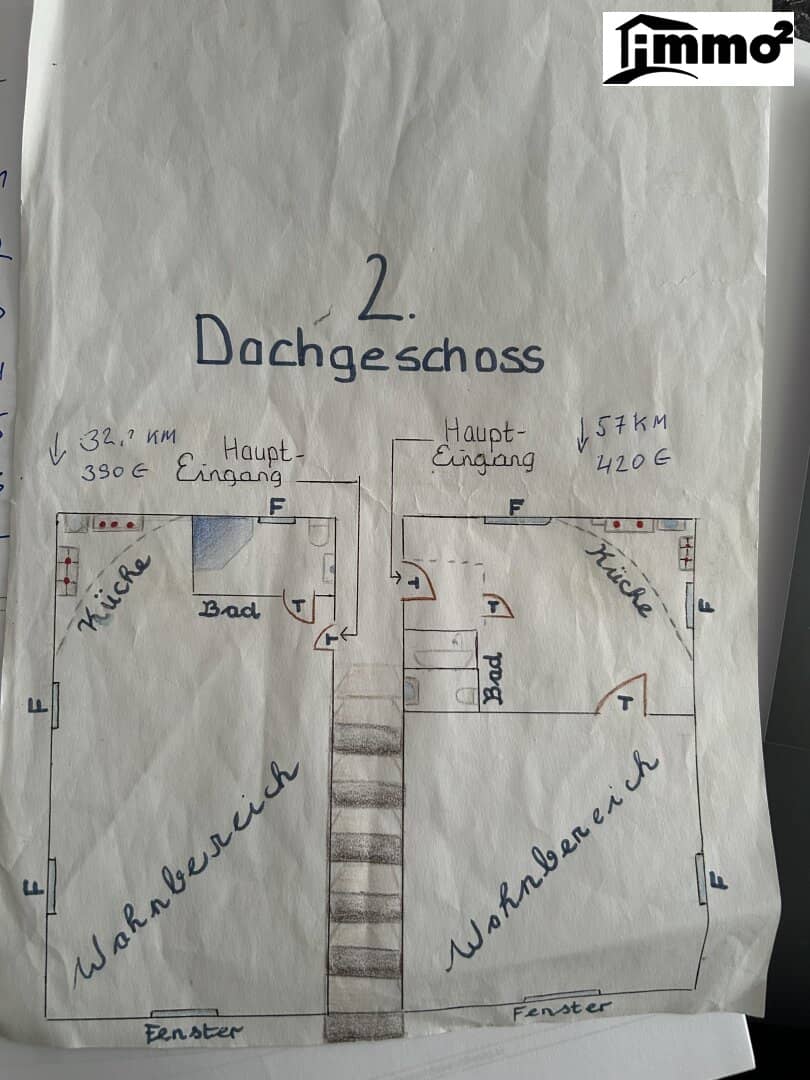 immo²
2.
Dachgeschoss
↓ 32,? KM
390 €
Haupt-
Eingang
Haupt-
Eingang
↓ 57 KM
420 €
F
F
Küche
Bad
T
T
T
T
Küche
F
Bad
T
F
Wohnbereich
Wohnbereich
F
F
Fenster
Fenster